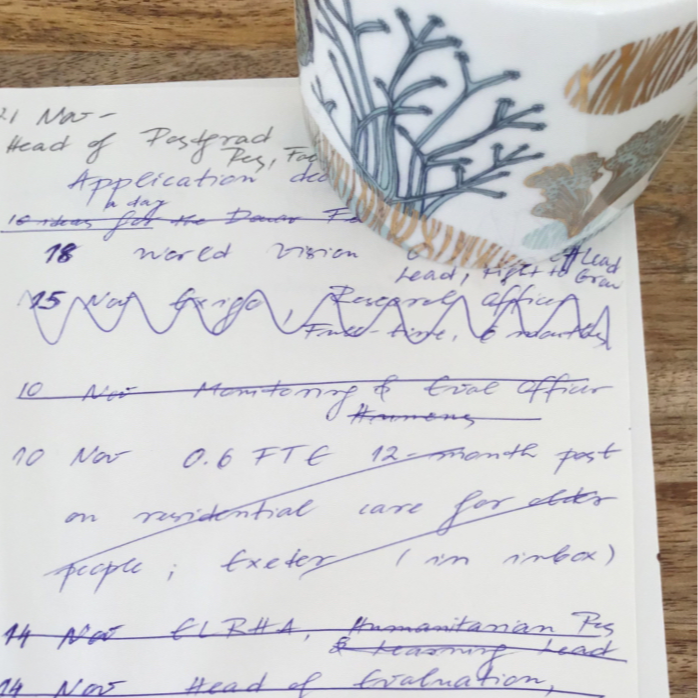 21 Nov -
Head of Postgrad
Res, Fac
Application dea
a day
10 ideas for the Donor Fo
18 World Vision
Lead
Lead, right to Grow
15 Nov Research officer
Full-time, 6 months
10 Nov Monitoring & Eval Officer
10 Nov 0.6 FTE 12-month post
on residential care for older
people; Exeter (in inbox)
14 Nov ELRHA, Humanitarian Res
& Learning Lead
14 Nov Head of Evaluation,